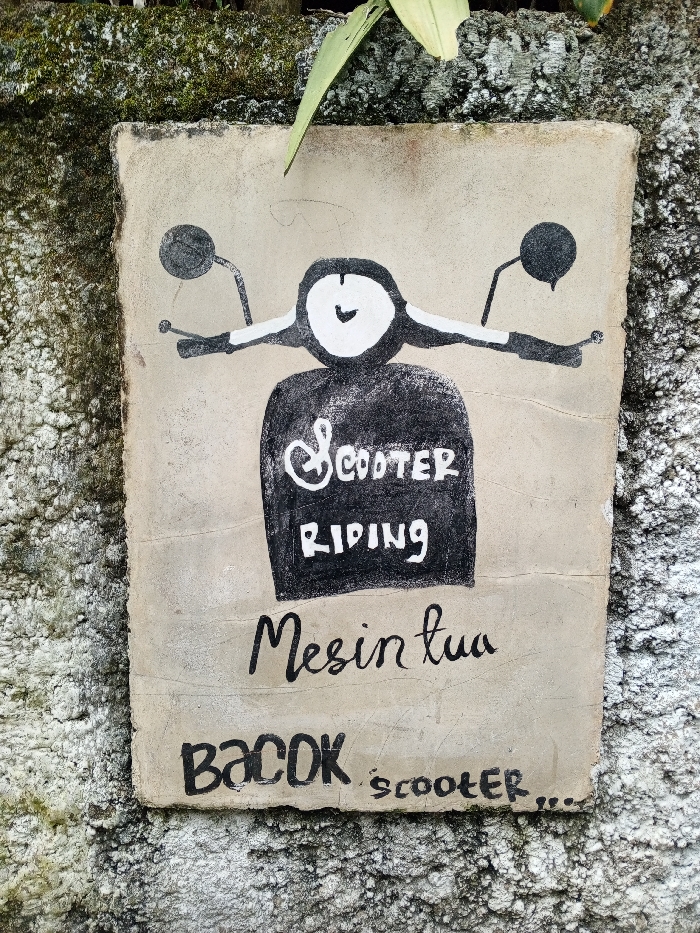 Scooter
RIDING
Mesin tua
BACOK scooter...